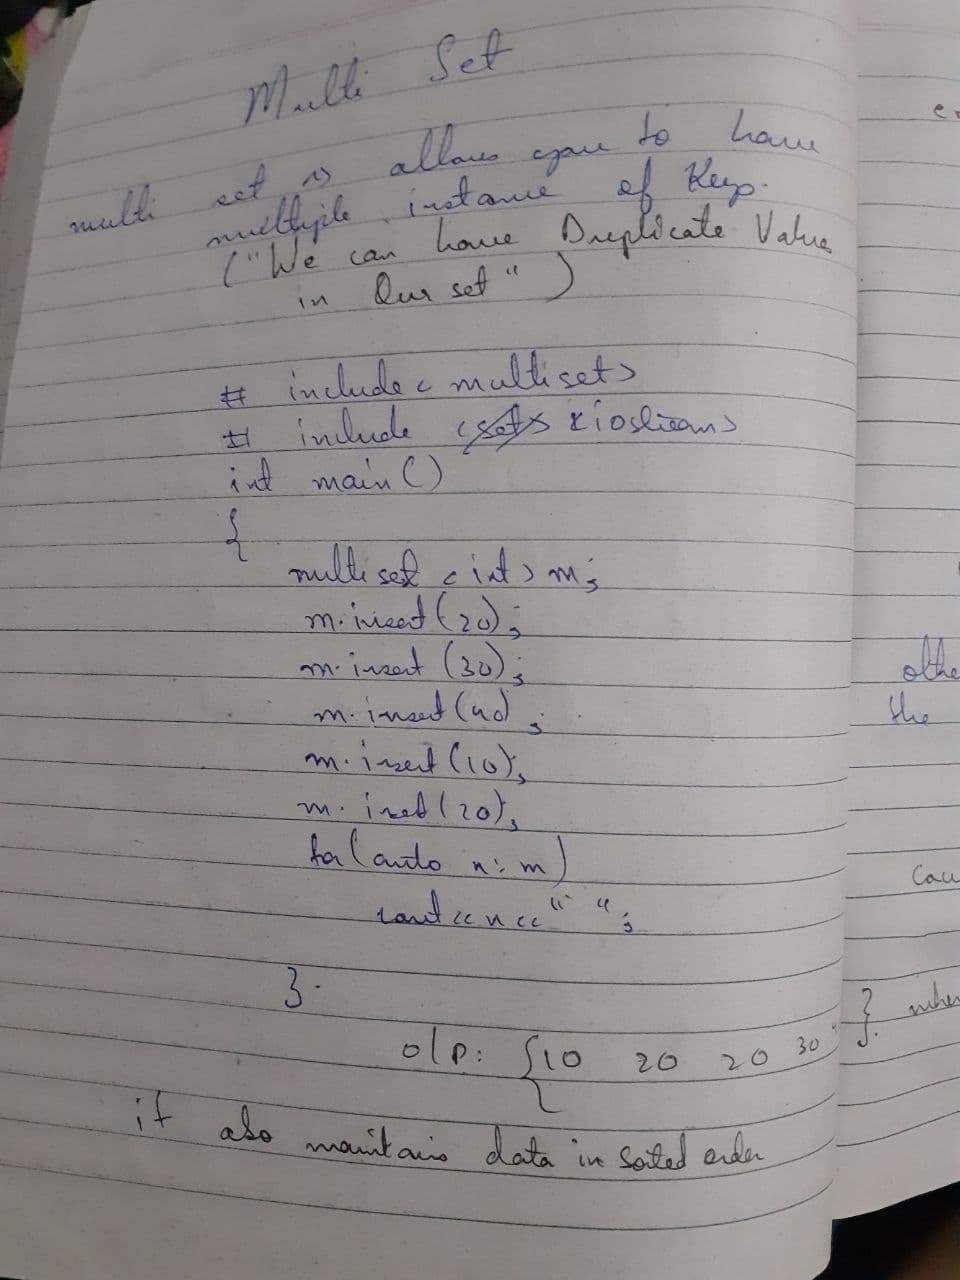 Multi Set
multi set is allows you to have
multiple instance of Key.
("We can have Duplicate Value
in Our set")
# include < multiset>
# include <set> <iostream>
int main()
{
multi set <int> m;
m.insert(20);
m.insert (30);
m.insert(40);
m.insert(10);
m.inset(20);
for(auto n: m)
cout<<n<<" ";
}
o/p: {10 20 20 30 }
it also maintains data in Sorted order
othe
the
Cau
when